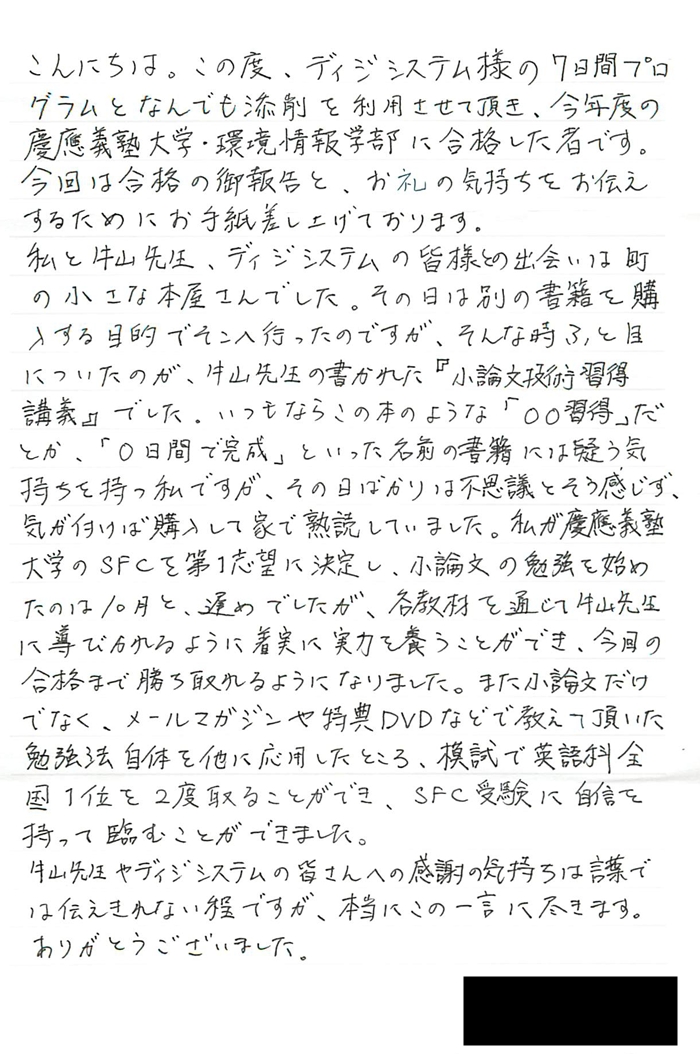 こんにちは。この度、ディジシステム様の7日間プロ
グラムとなんでも添削を利用させて頂き、今年度の
慶應義塾大学・環境情報学部に合格した者です。
今回は合格の御報告と、お礼の気持ちをお伝え
するためにお手紙差し上げております。
私と牛山先生、ディジシステムの皆様との出会いは町
の小さな本屋さんでした。その日は別の書籍を購
入する目的でそこへ行ったのですが、そんな時ふと目
についたのが、牛山先生の書かれた『小論文技術習得
講義』でした。いつもならこの本のような「〇〇習得」だ
とか、「〇日間で完成」といった名前の書籍には疑う気
持ちを持つ私ですが、その日ばかりは不思議とそう感じず、
気が付けば購入して家で熟読していました。私が慶應義塾
大学のSFCを第1志望に決定し、小論文の勉強を始め
たのは10月と、遅めでしたが、各教材を通じて牛山先生
に導びかれるように着実に実力を養うことができ、今回の
合格まで勝ち取れるようになりました。また小論文だけ
でなく、メールマガジンや特典DVDなどで教えて頂いた
勉強法自体を他に応用したところ、模試で英語科全
国1位を2度取ることができ、SFC受験に自信を
持って臨むことができました。
牛山先生やディジシステムの皆さんへの感謝の気持ちは言葉で
は伝えきれない程ですが、本当にこの一言に尽きます。
ありがとうございました。